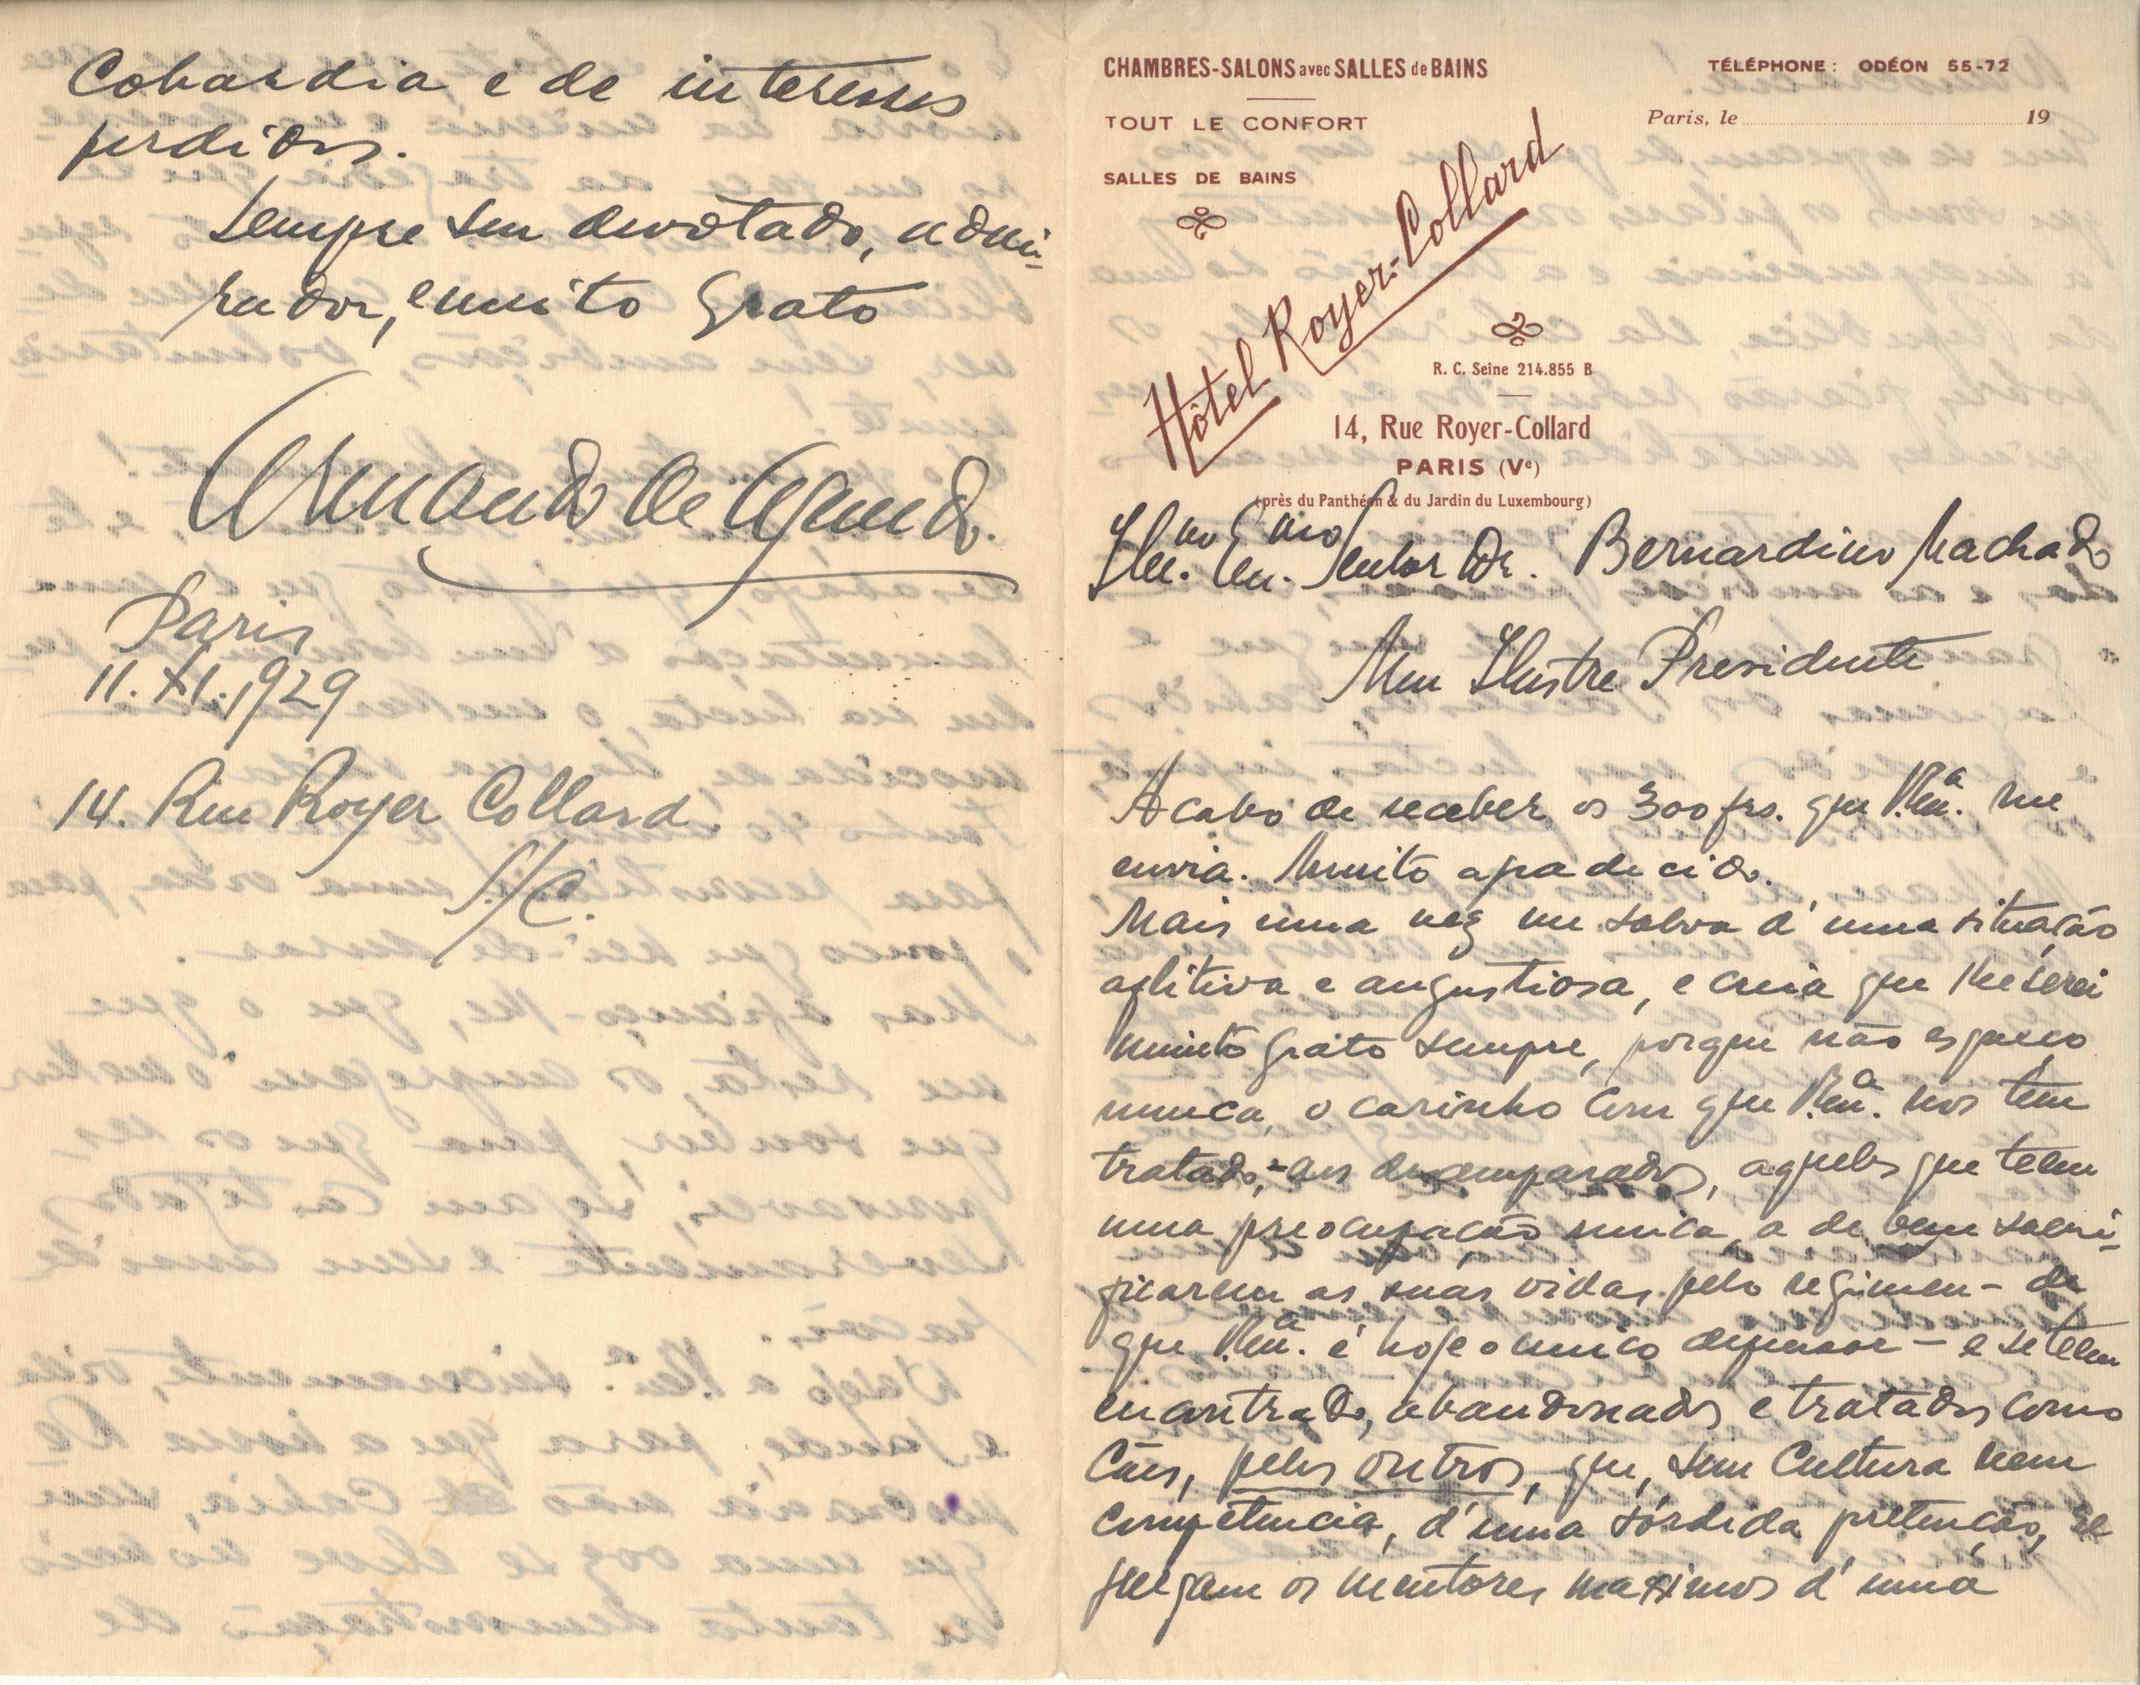 Cobardia e de interesses
perdidos.
Sempre seu devotado, admi-
rador, e muito grato
Armando de
Paris
11.XI.1929
14. Rue Royer Collard.
S/C.
CHAMBRES-SALONS avec SALLES de BAINS
TÉLÉPHONE: ODÉON 55-72
TOUT LE CONFORT
Paris, le 19
SALLES DE BAINS
Hôtel Royer-Collard
R. C. Seine 214.855 B
14, Rue Royer-Collard
PARIS (Ve)
(près du Panthéon & du Jardin du Luxembourg)
Ilmo. Exmo. Senhor Dr. Bernardino Machado
Meu Ilustre Presidente
Acabo de receber os 300 frs. que V. Exª. me
envia. Muito agradecido.
Mais uma vez me salva d'uma situação
aflitiva e angustiosa, e creia que lhe serei
muito grato sempre, porque não esqueço
nunca, o carinho com que V. Exª. nos tem
tratado, - aos desamparados, aqueles que teem
uma preocupação unica, a de bem sacri-
ficarem as suas vidas pelo regimen - de
que V. Exª. é hoje o unico defensor - e se teem
encontrado, abandonados e tratados como
Cães, pelos outros, que, sem Cultura nem
competencia, d'uma sórdida pretenção, se
julgam os mentores maximos d'uma